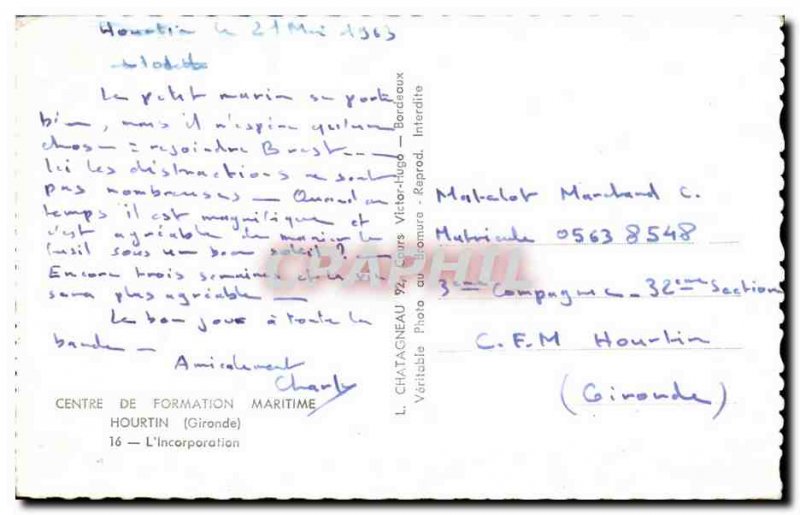 Hourtin le 21 Mai 1963
Le petit marin se porte
bien, mais il n'espère qu'une
chose = rejoindre Brest
Ici les distractions ne sont
pas nombreuses — Quand au
temps il est magnifique et
c'est agréable de manier le
fusil sous un bon soleil? —
Encore trois semaines et la vie
sera plus agréable —
Le bon jour à toute la
bande —
Amicalement
Charly
CENTRE DE FORMATION MARITIME
HOURTIN (Gironde)
16 — L'Incorporation
L. CHATAGNEAU 92, Cours Victor-Hugo — Bordeaux
Véritable Photo au Bromure - Reprod. Interdite
Matelot Marchand C.
Matricule 0563 8548
3eme Compagnie - 32eme Section
C.F.M Hourtin
(Gironde)
CPARPHIL